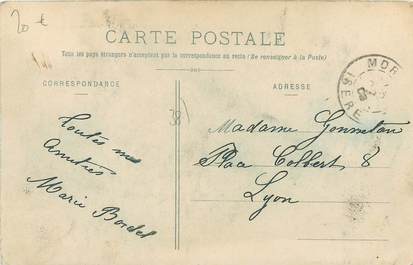 20 €
CARTE POSTALE
Tous les pays étrangers n'acceptent pas la correspondance au recto (Se renseigner à la Poste)
CORRESPONDANCE
ADRESSE
MOR
ISÈRE
38
Toutes mes
Amitiés
Marie Bordel
Madame Gonnetan
Place Colbert 8
Lyon